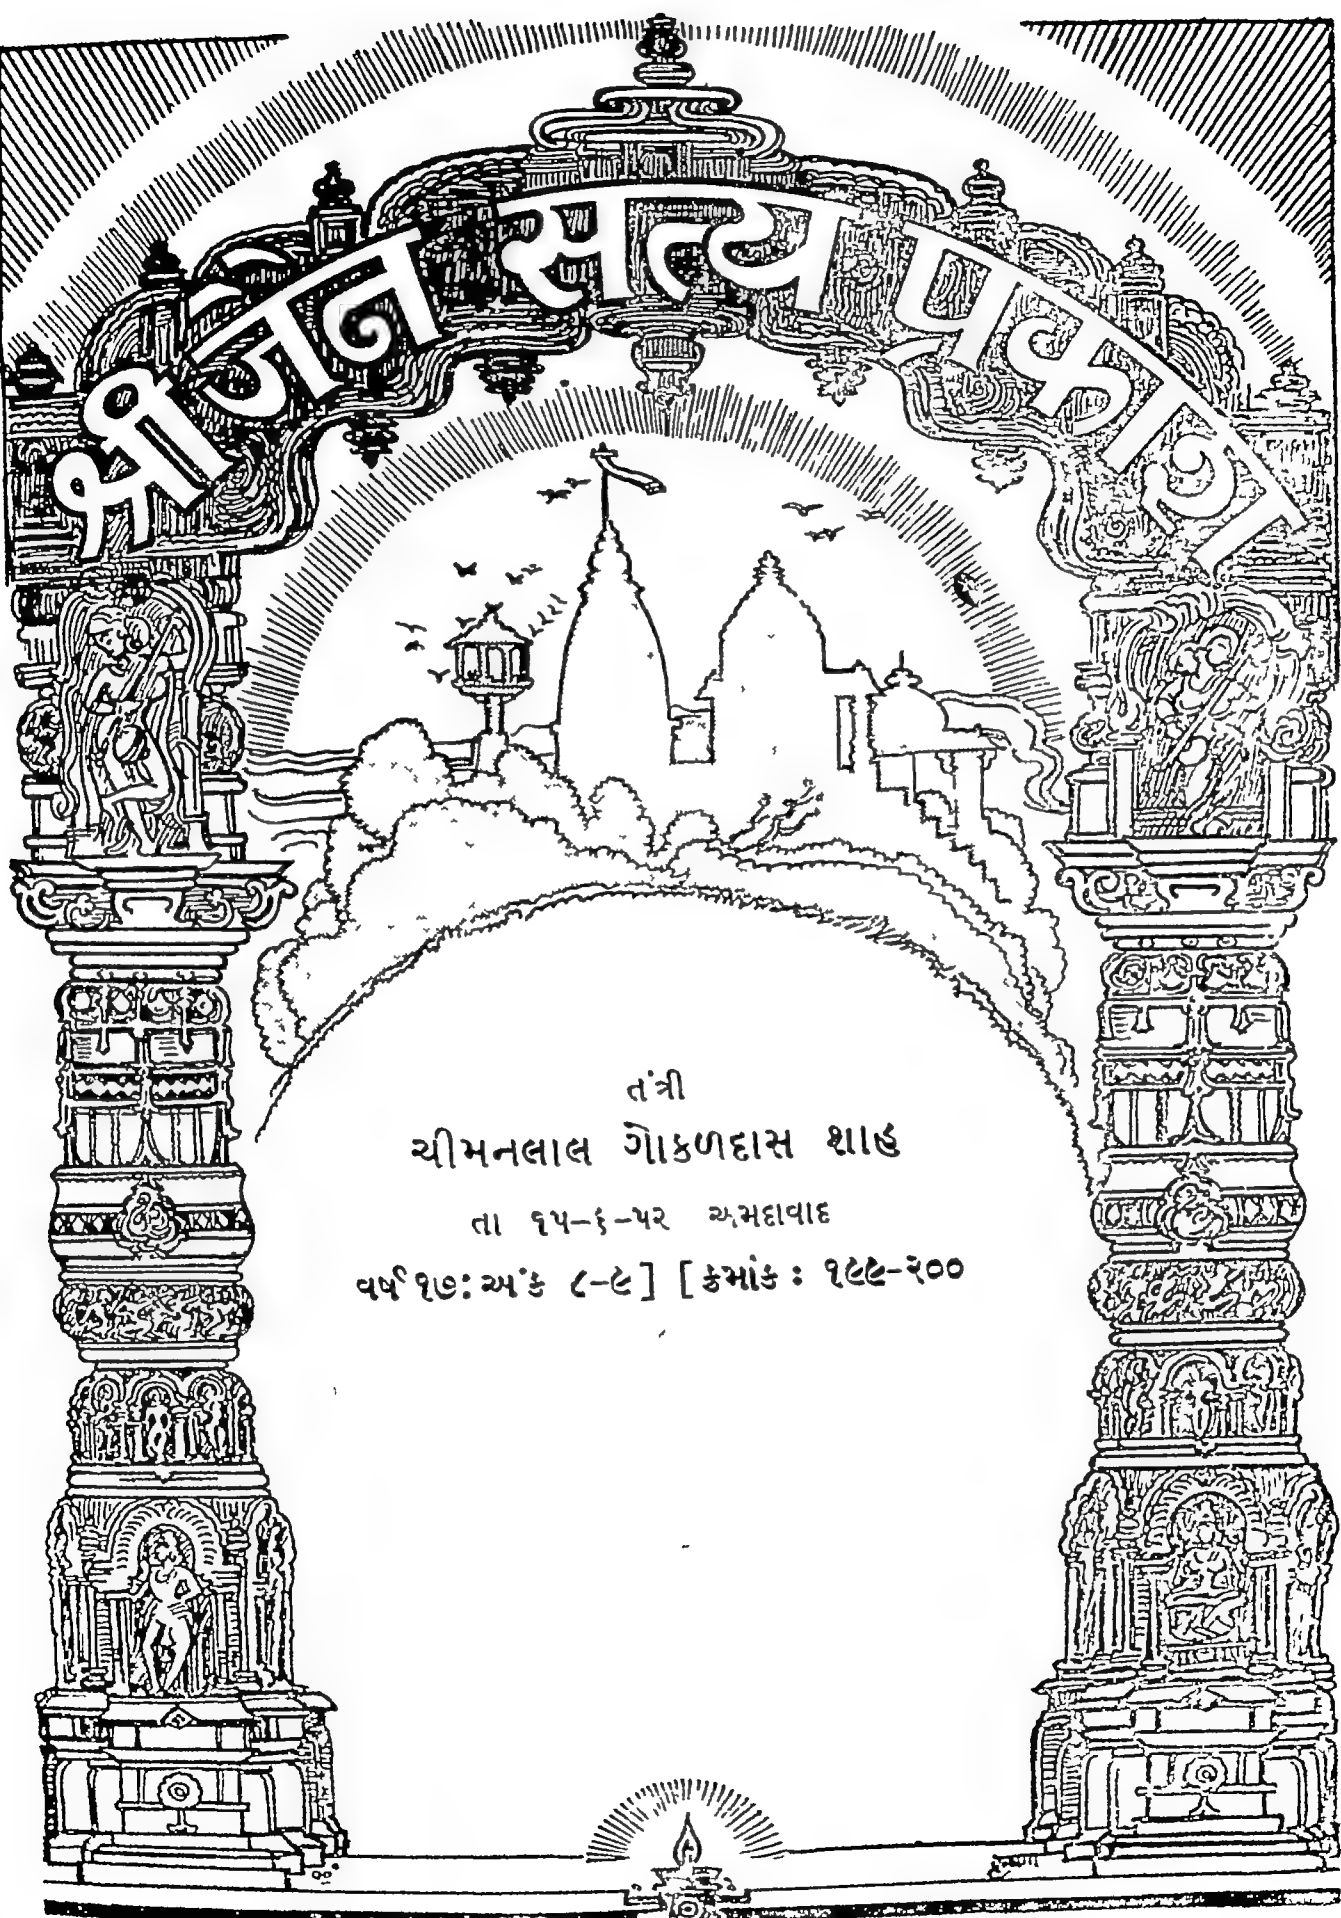 श्री जैन सत्य प्रकाश
તંત્રી
ચીમનલાલ ગોકળદાસ શાહ
તા ૧૫-૬-૫૨ અમદાવાદ
વર્ષ ૧૭: અંક ૮-૯] [ક્રમાંક : ૧૯૯-૨૦૦